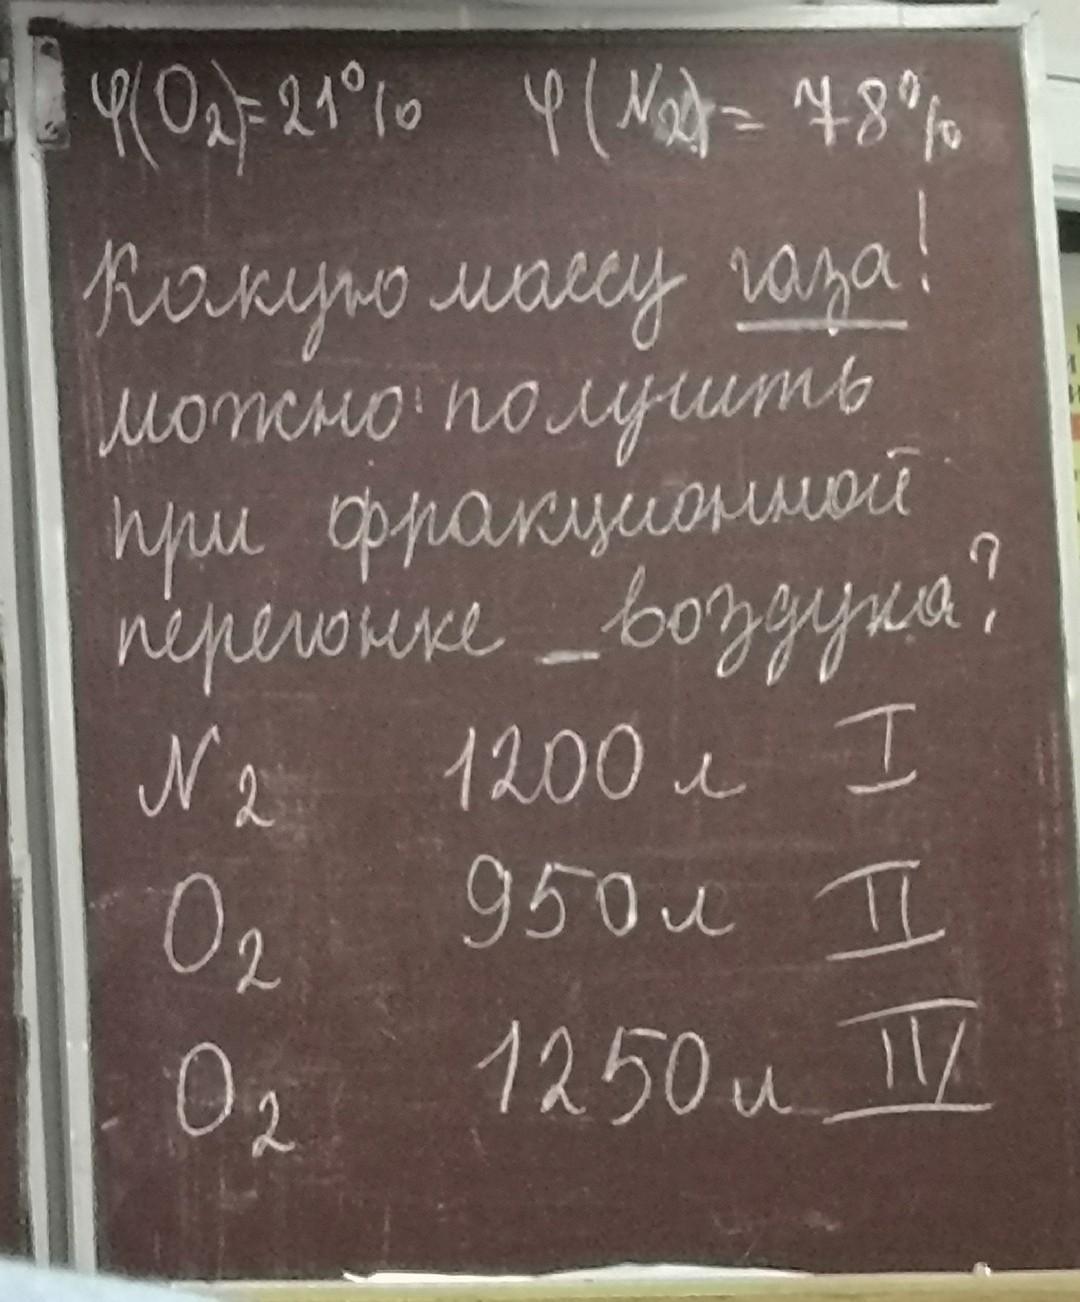 φ(O₂)=21% φ(N₂)= 78%
Какую массу газа!
можно получить
при фракционной
перегонке _ воздуха?
N₂ 1200 л I
O₂ 950 л II
O₂ 1250 л IV